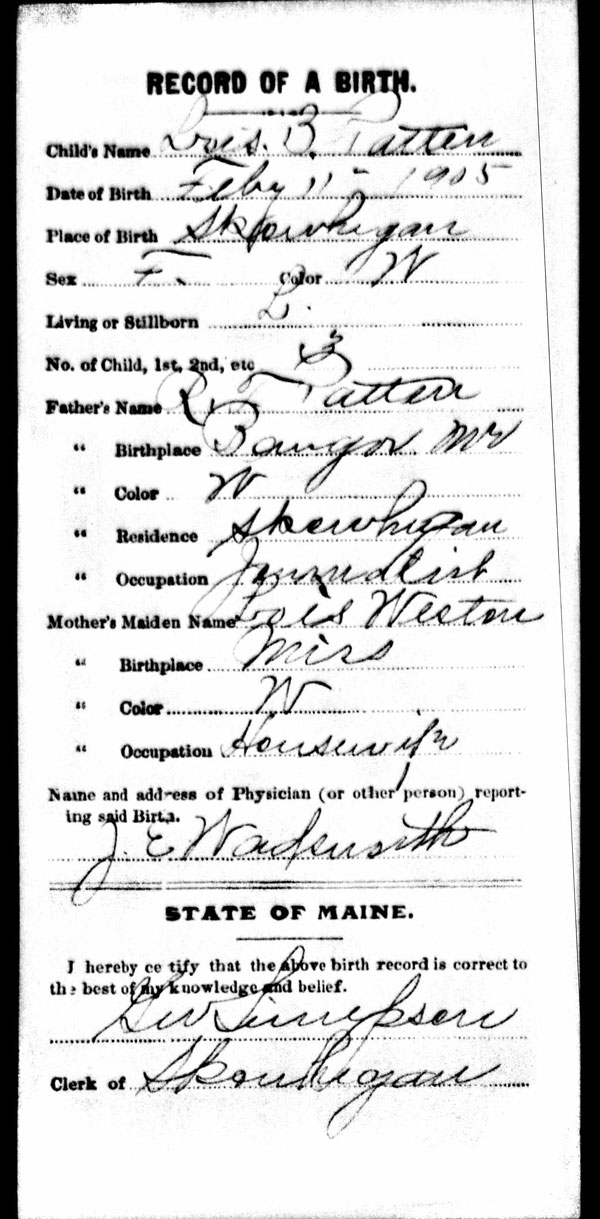 RECORD OF A BIRTH.
Child's Name Lois. B. Patten
Date of Birth Feby 11 - 1905
Place of Birth Skowhegan
Sex F. Color W
Living or Stillborn L.
No. of Child, 1st, 2nd, etc 3
Father's Name R. T. Patten
" Birthplace Bangor Me
" Color W
" Residence Skowhegan
" Occupation Journalist
Mother's Maiden Name Lois Weston
" Birthplace
" Color W
" Occupation Housewife
Name and address of Physician (or other person) report-
ing said Birth.
J. E Wadsworth
STATE OF MAINE.
I hereby certify that the above birth record is correct to
the best of my knowledge and belief.
Simpson
Clerk of Skowhegan